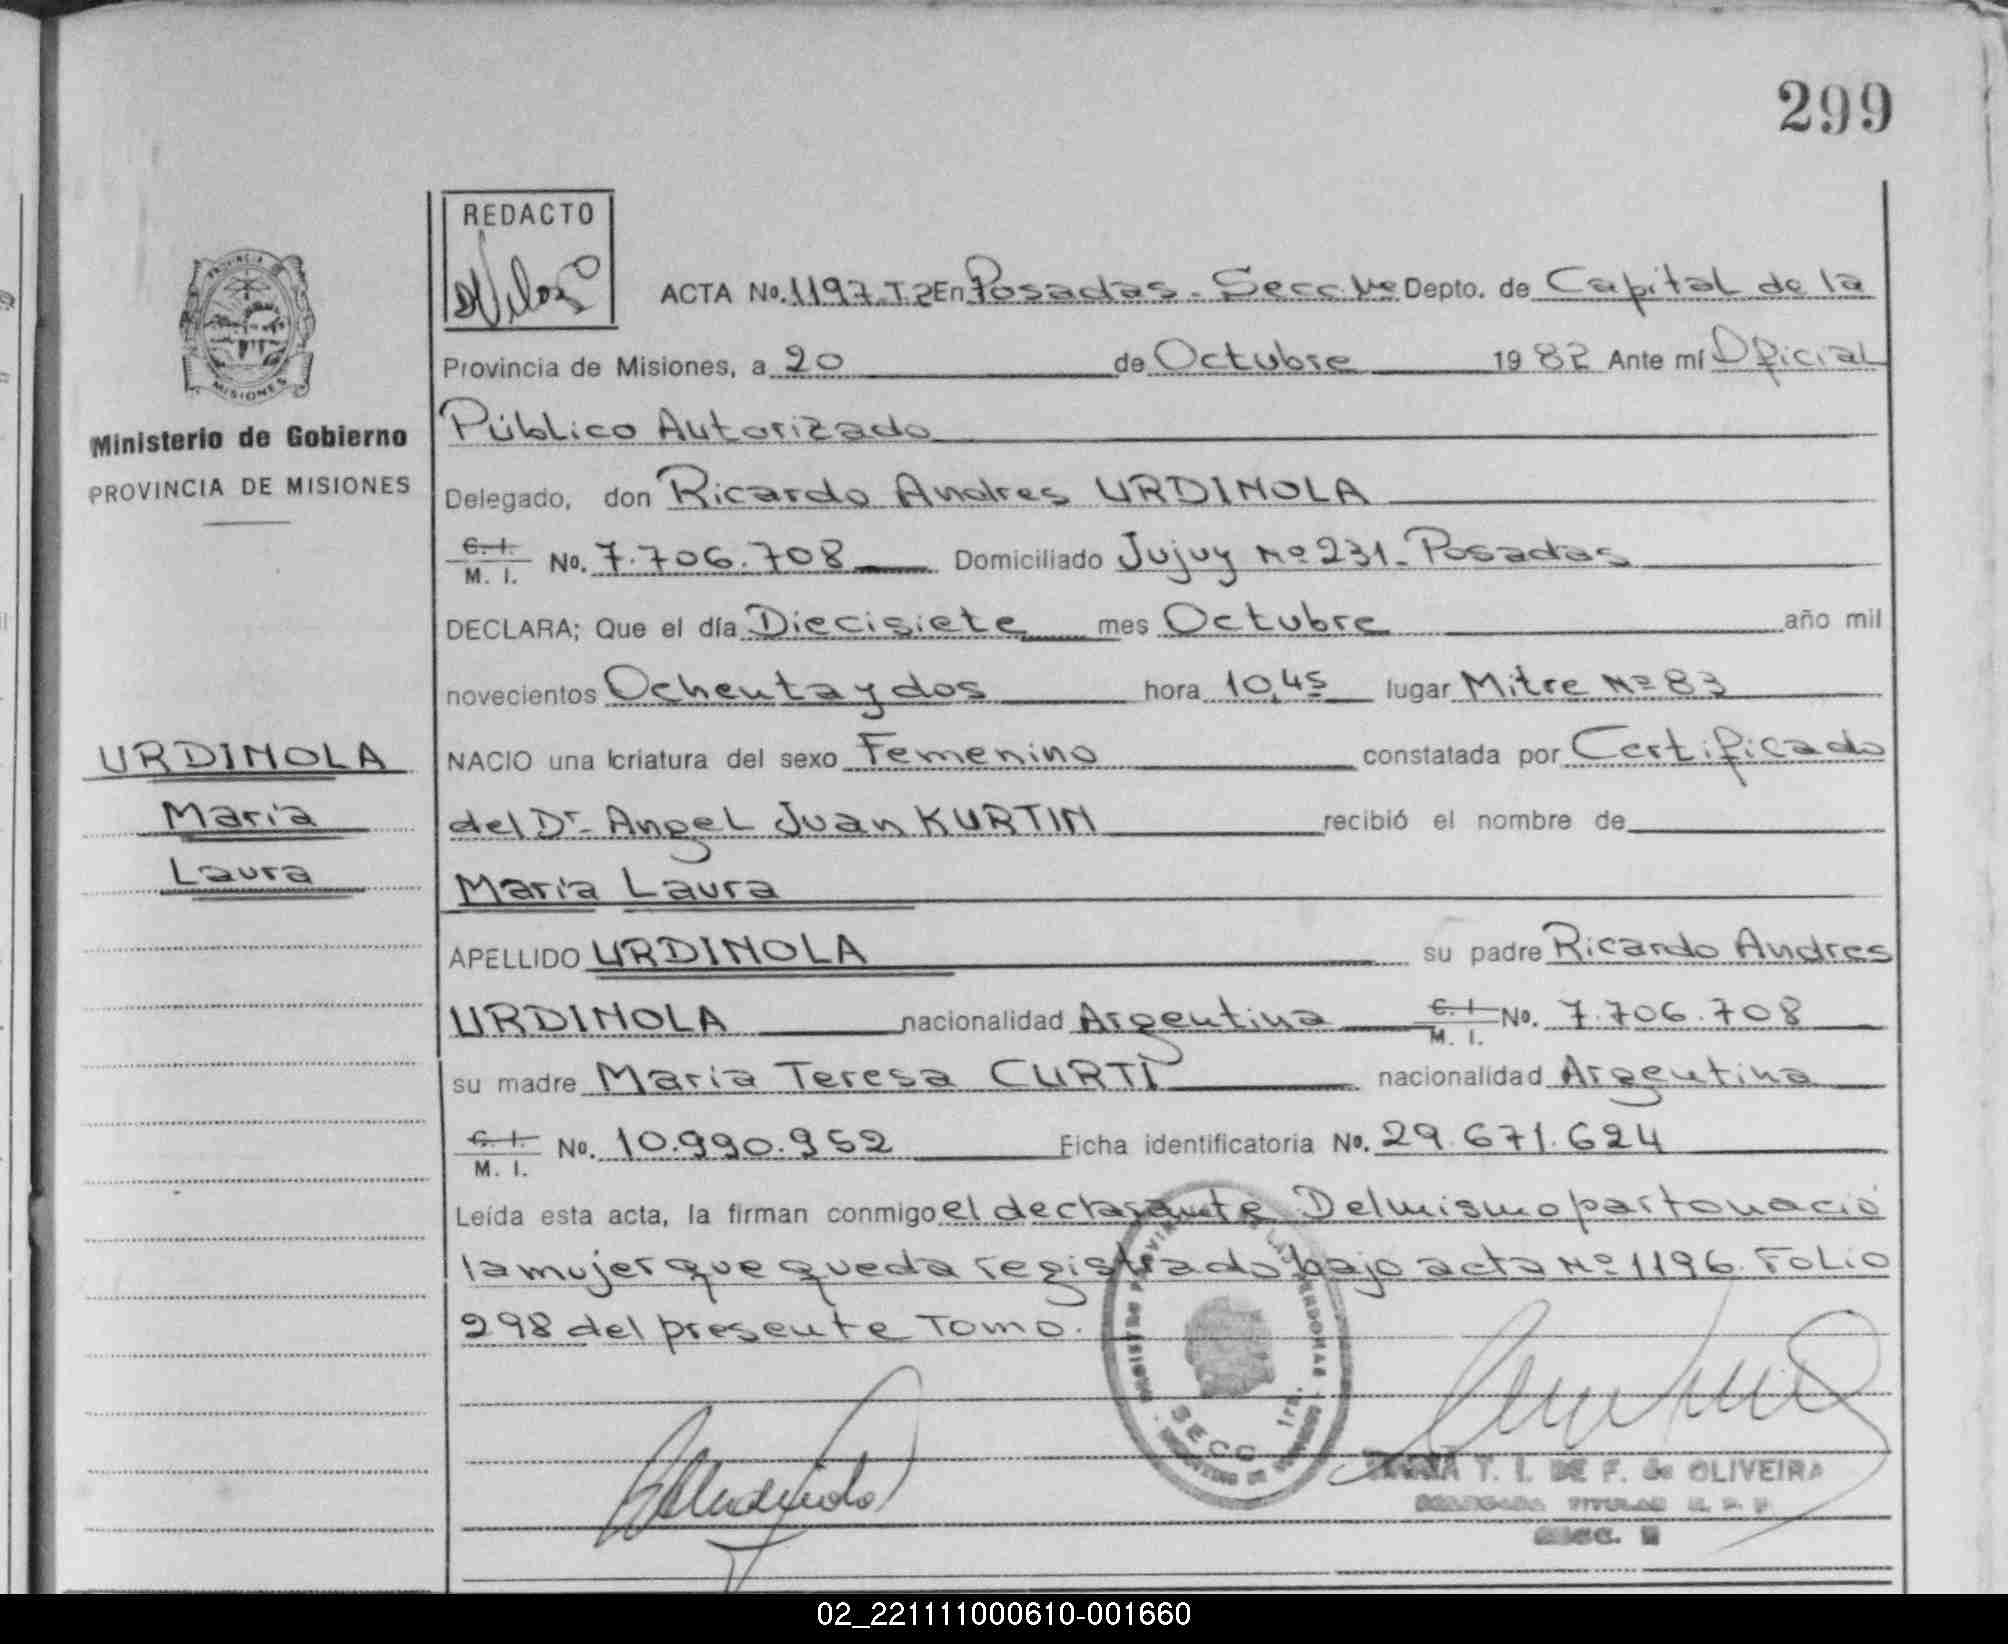 299
REDACTO
ACTA No. 1197. T2 En Posadas. Secc. Depto. de Capital de la
PROVINCIA DE
MISIONES
Provincia de Misiones, a 20 de Octubre 1982 Ante mí Oficial
Ministerio de Gobierno
Público Autorizado
PROVINCIA DE MISIONES
Delegado, don Ricardo Andres URDINOLA
C. I.
M. I. No. 7.706.708 Domiciliado Jujuy Nº 231. Posadas
DECLARA; Que el día Diecisiete mes Octubre año mil
novecientos Ochenta y dos hora 10,45 lugar Mitre Nº 83
URDINOLA
NACIO una criatura del sexo Femenino constatada por Certificado
María
del Dr. Angel Juan KURTIN recibió el nombre de
Laura
María Laura
APELLIDO URDINOLA su padre Ricardo Andres
URDINOLA nacionalidad Argentina C. I. M. I. No. 7.706.708
su madre María Teresa CURTI nacionalidad Argentina
C. I.
M. I. No. 10.990.952 Ficha identificatoria No. 29.671.624
Leída esta acta, la firman conmigo el declarante Del mismo parto nació
la mujer que queda registrado bajo acta Nº 1196. Folio
298 del presente Tomo.
SECC 1ra.
T. I. DE F. de OLIVEIRA
TITULAR
SECC.
02_221111000610-001660